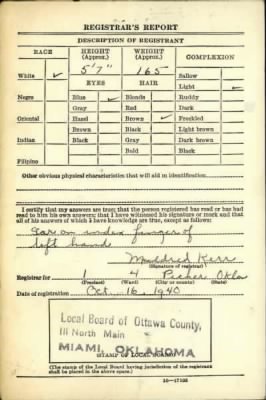 REGISTRAR'S REPORT
DESCRIPTION OF REGISTRANT
RACE
HEIGHT (Approx.)
WEIGHT (Approx.)
COMPLEXION
5'7"
165
Sallow
White ✓
EYES
HAIR
Light ✓
Negro
Blue ✓
Blonde
Ruddy
Gray
Red
Dark
Oriental
Hazel
Brown ✓
Freckled
Brown
Black
Light brown
Indian
Black
Gray
Dark brown
Bald
Black
Filipino
Other obvious physical characteristics that will aid in identification
I certify that my answers are true; that the person registered has read or has had
read to him his own answers; that I have witnessed his signature or mark and that
all of his answers of which I have knowledge are true, except as follows:
Scar on index finger of
left hand
Mildred Kerr
(Signature of registrar)
Registrar for 1 4 Picher, Okla
(Precinct) (Ward) (City or county) (State)
Date of registration Oct. 16, 1940
Local Board of Ottawa County,
111 North Main
MIAMI, OKLAHOMA
STAMP OF LOCAL BOARD
(The stamp of the Local Board having jurisdiction of the registrant
shall be placed in the above space.)